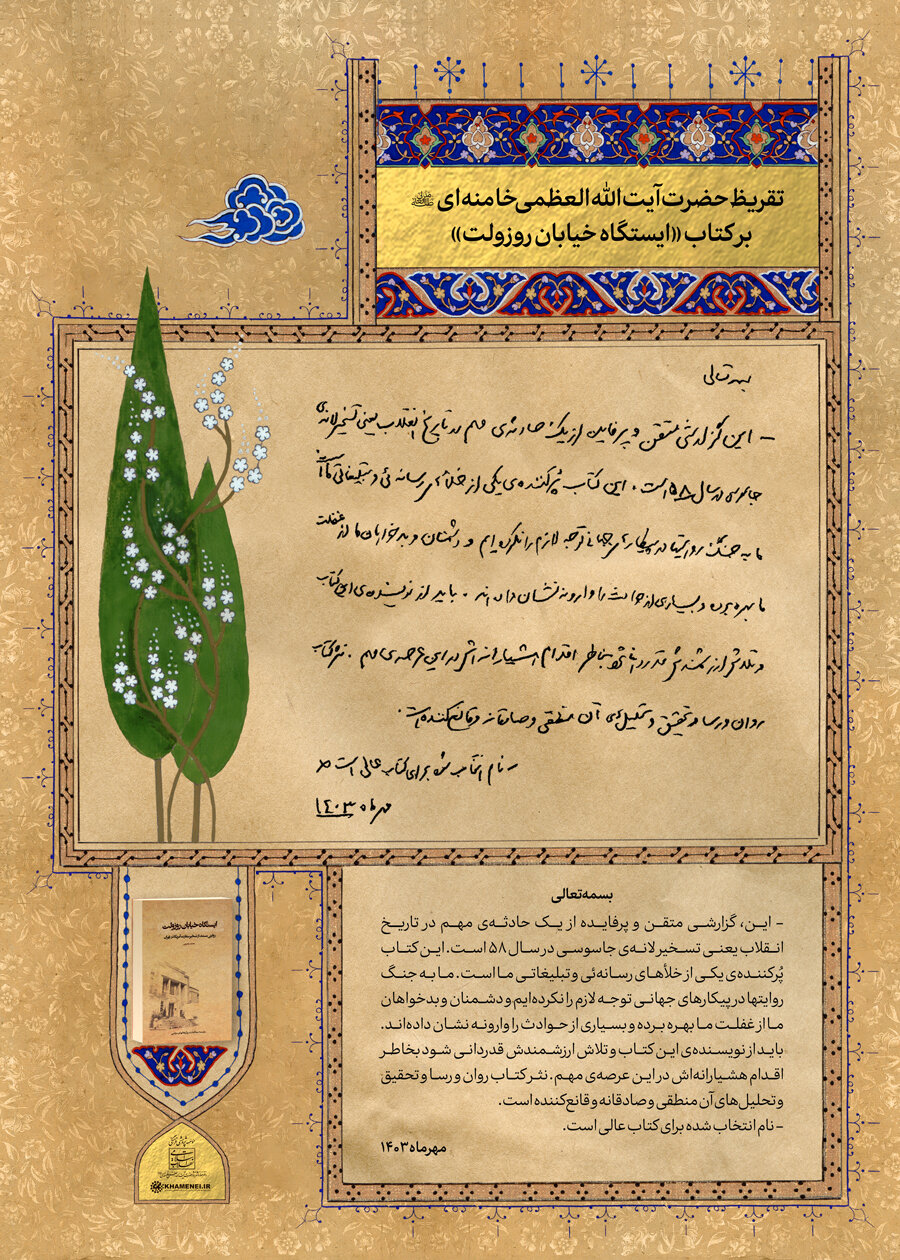 تقریظ حضرت آیت‌الله العظمی خامنه‌ای
بر کتاب «ایستگاه خیابان روزولت»
بسمه تعالی
– این گزارشی متقن و پرفایده از یک حادثه‌ی مهم در تاریخ انقلاب یعنی تسخیر لانه‌ی
جاسوسی در سال ۵۸ است. این کتاب پُرکننده‌ی یکی از خلأهای رسانه‌ئی و تبلیغاتی ما است
ما به جنگ روایتها در پیکارهای جهانی توجه لازم را نکرده‌ایم و دشمنان و بدخواهان ما از غفلت
ما بهره برده و بسیاری از حوادث را وارونه نشان داده‌اند. باید از نویسنده‌ی این کتاب
و تلاش ارزشمندش قدردانی شود بخاطر اقدام هشیارانه‌اش در این عرصه‌ی مهم. نثر کتاب
روان و رسا و تحقیق و تحلیل‌های آن منطقی و صادقانه و قانع‌کننده است.
– نام انتخاب شده برای کتاب عالی است
مهرماه ۱۴۰۳
بسمه‌تعالی
– این، گزارشی متقن و پرفایده از یک حادثه‌ی مهم در تاریخ
انقلاب یعنی تسخیر لانه‌ی جاسوسی در سال ۵۸ است. این کتاب
پُرکننده‌ی یکی از خلأهای رسانه‌ئی و تبلیغاتی ما است. ما به جنگ
روایتها در پیکارهای جهانی توجه لازم را نکرده‌ایم و دشمنان و بدخواهان
ما از غفلت ما بهره برده و بسیاری از حوادث را وارونه نشان داده‌اند.
باید از نویسنده‌ی این کتاب و تلاش ارزشمندش قدردانی شود بخاطر
اقدام هشیارانه‌اش در این عرصه‌ی مهم. نثر کتاب روان و رسا و تحقیق
و تحلیل‌های آن منطقی و صادقانه و قانع‌کننده است.
– نام انتخاب شده برای کتاب عالی است.
مهرماه ۱۴۰۳
ایستگاه خیابان روزولت
KHAMENEI.IR